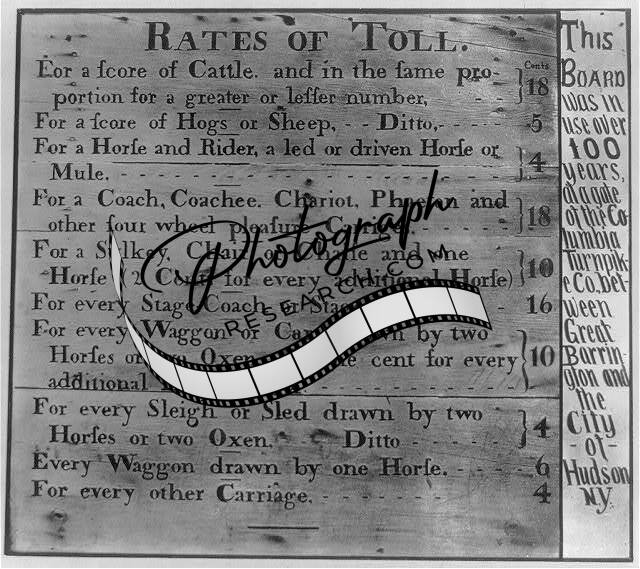 RATES OF TOLL.
Cents
For a ſcore of Cattle. and in the ſame pro-
portion for a greater or leſſer number, - - - 18
For a ſcore of Hogs or Sheep, - - Ditto,- - - - 5
For a Horſe and Rider, a led or driven Horſe or
Mule. - - - - 4
For a Coach, Coachee. Chariot, and
other four wheel 18
For a
Horſe (2 for every additional Horſe) 10
For every Stage Coach 16
For every Waggon or by two
Horſes or Oxen cent for every
additional 10
For every Sleigh or Sled drawn by two
Horſes or two Oxen. - Ditto - - - - 4
Every Waggon drawn by one Horſe. - - - - 6
For every other Carriage. - - - - 4
This
BOARD
was in
use over
100
years,
at a gate
of the Co
lumbia
Turnpik-
e Co. bet-
ween
Great
Barrin-
gton and
the
City
- of -
Hudson
N.Y.
Photograph
RESEARCH.COM